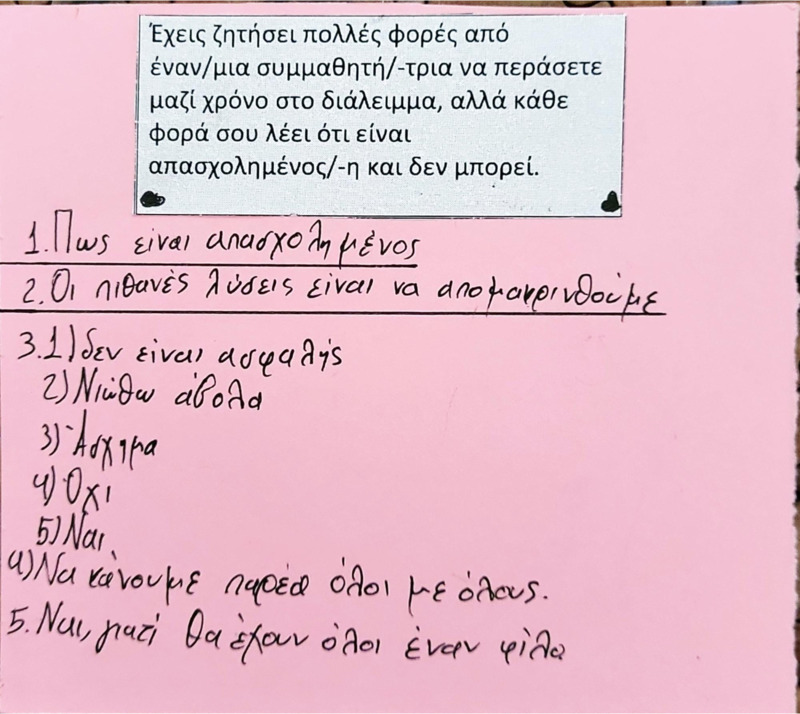 Έχεις ζητήσει πολλές φορές από
έναν/μια συμμαθητή/-τρια να περάσετε
μαζί χρόνο στο διάλειμμα, αλλά κάθε
φορά σου λέει ότι είναι
απασχολημένος/-η και δεν μπορεί.
1. Πως είναι απασχολημένος
2. Οι πιθανές λύσεις είναι να απομακρινθούμε
3. 1) δεν είναι ασφαλής
2) Νιώθω άβολα
3) Άσχημα
4) Όχι
5) Ναι
4) Να κάνουμε παρέα όλοι με όλους.
5. Ναι, γιατί θα έχουν όλοι έναν φίλο